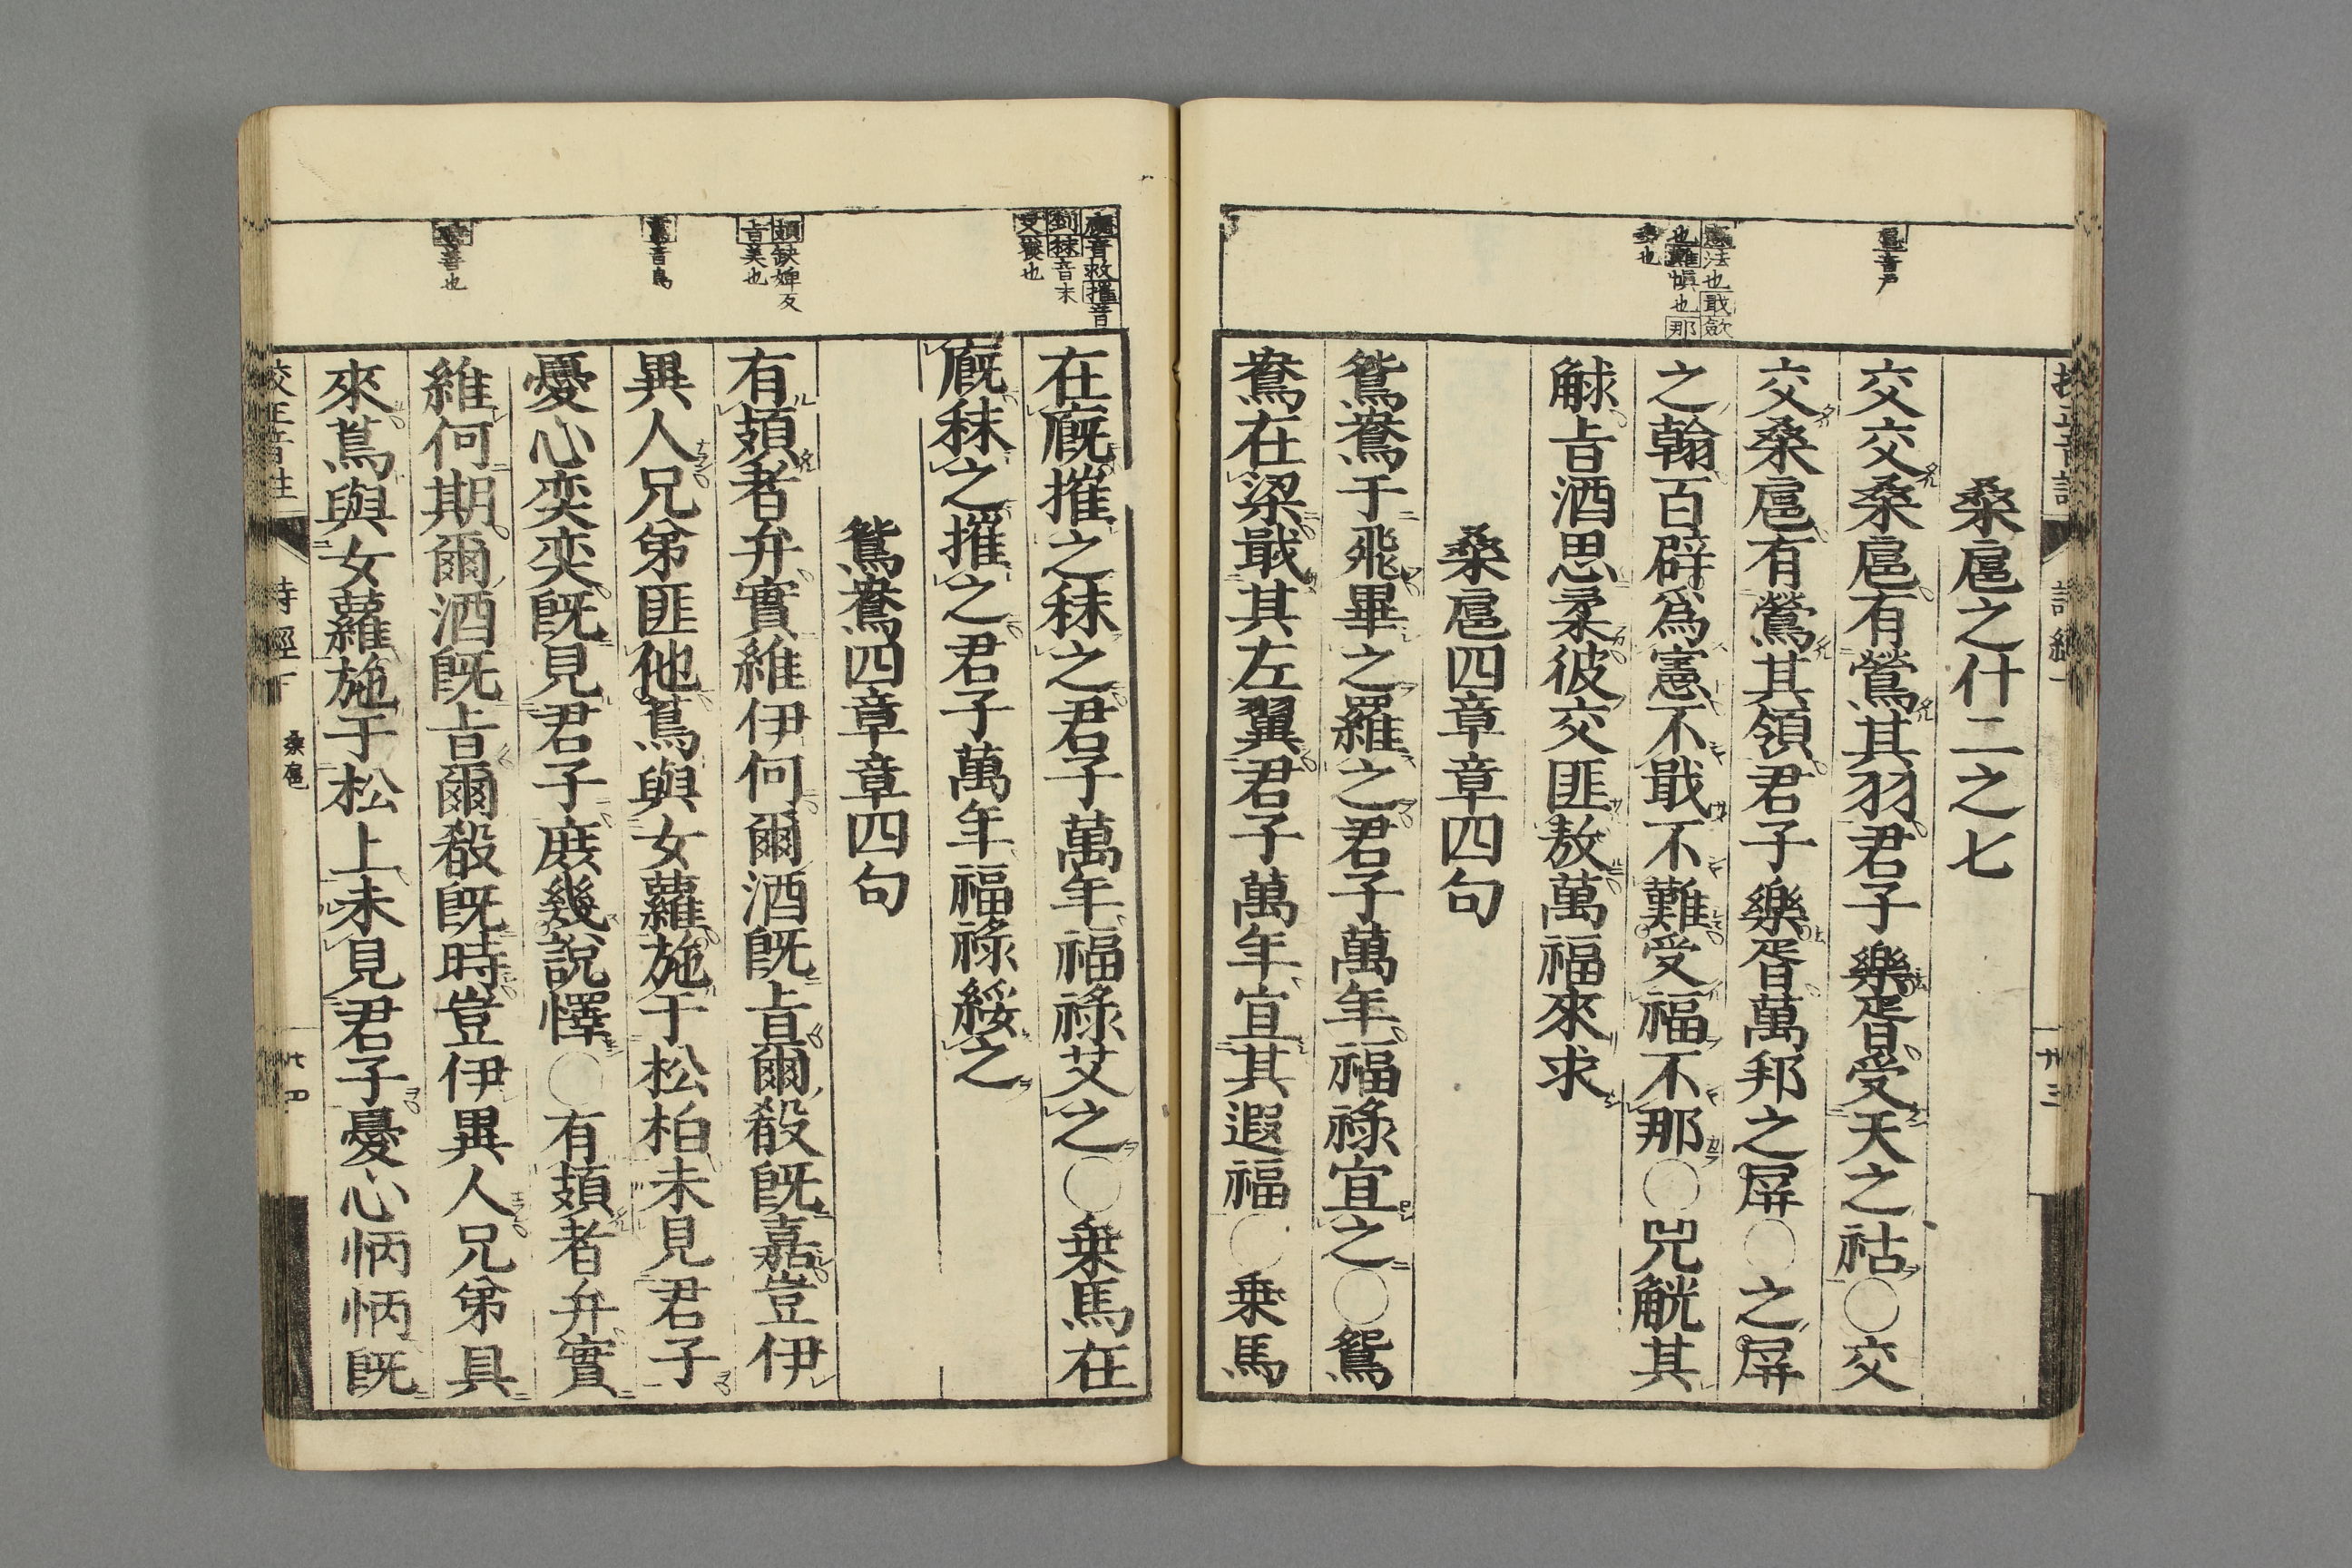 扈音戸
憲法也戢斂
也難愼也那
多也
桑扈之什二之七
交交桑扈有鶯其羽君子樂胥受天之祜○交
交桑扈有鶯其領君子樂胥萬邦之屏○之屏
之翰百辟爲憲不戢不難受福不那○兕觥其
觩㫖酒思柔彼交匪敖萬福來求
桑扈四章章四句
鴛鴦于飛畢之羅之君子萬年福祿宜之○鴛
鴦在梁戢其左翼君子萬年宜其遐福○乗馬
廐音救摧音
剉秣音末
艾養也
頍缺婢反
㫖美也
蔦音鳥
時善也
在廐摧之秣之君子萬年福祿艾之○乗馬在
廐秣之摧之君子萬年福祿綏之
鴛鴦四章章四句
有頍者弁實維伊何爾酒旣㫖爾殽旣嘉豈伊
異人兄弟匪他蔦與女蘿施于松柏未見君子
憂心奕奕旣見君子庶幾說懌○有頍者弁實
維何期爾酒旣㫖爾殽旣時豈伊異人兄弟具
來蔦與女蘿施于松上未見君子憂心怲怲旣
詩經下 桑扈